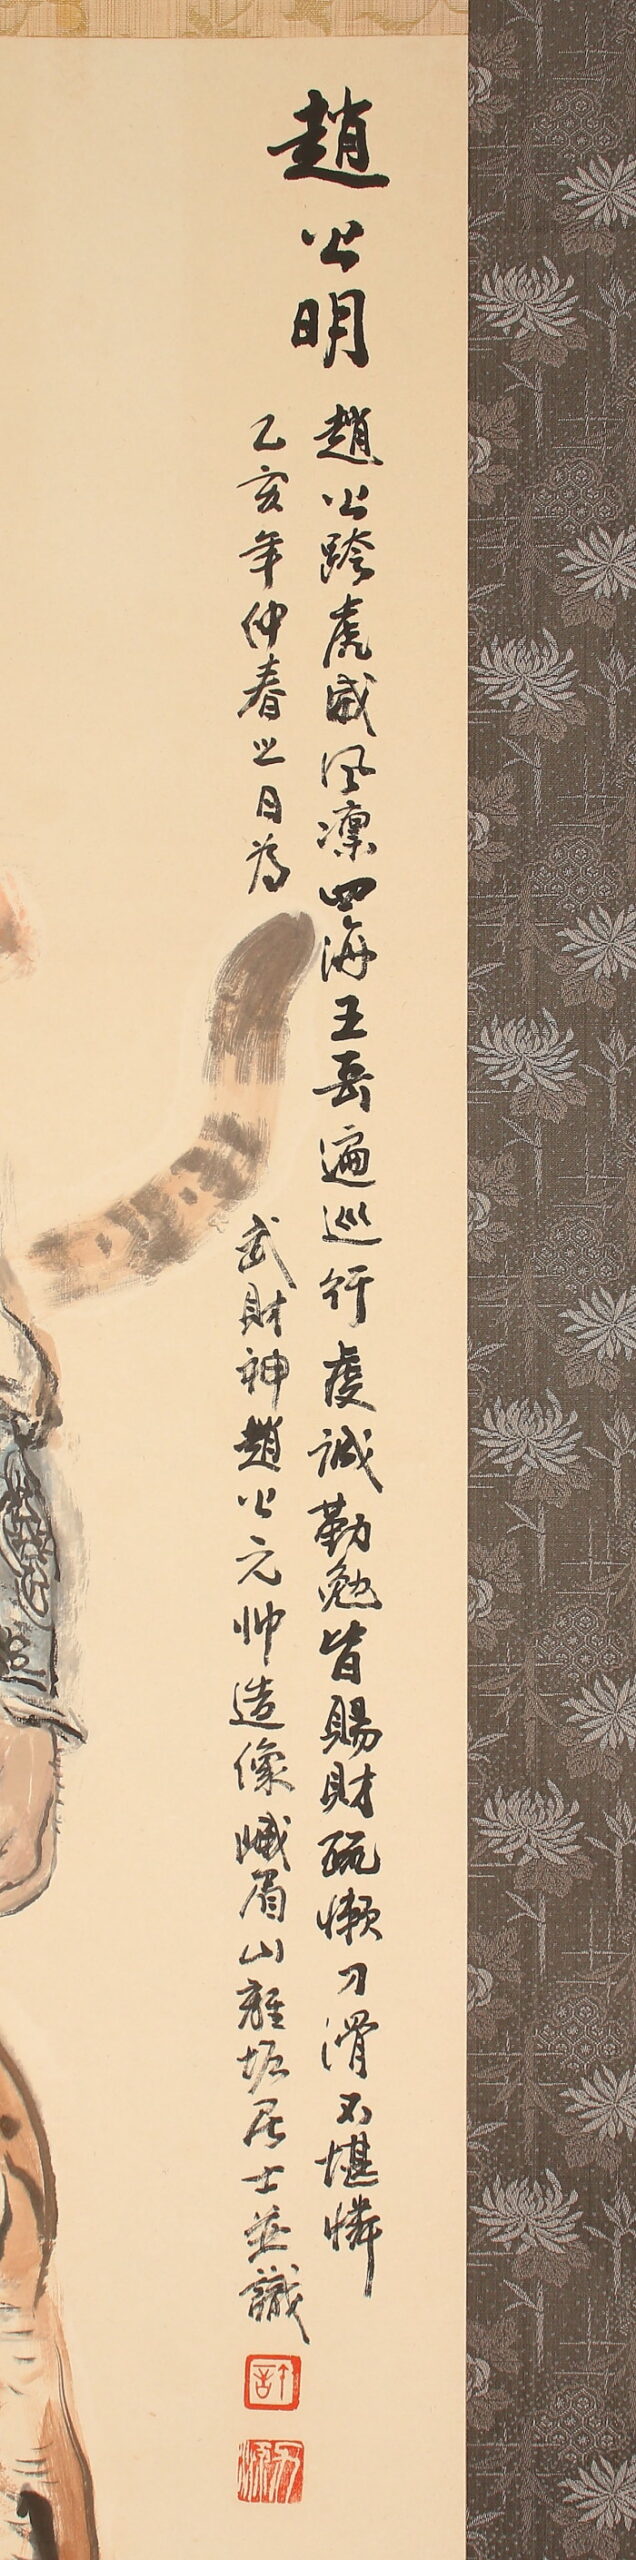 趙公明
趙公跨虎威風凜四海五岳遍巡行虔誠勤勉皆賜財疏懶刁滑不堪憐
乙亥年仲春之日為武財神趙公元帥造像峨眉山離垢居士並識
許